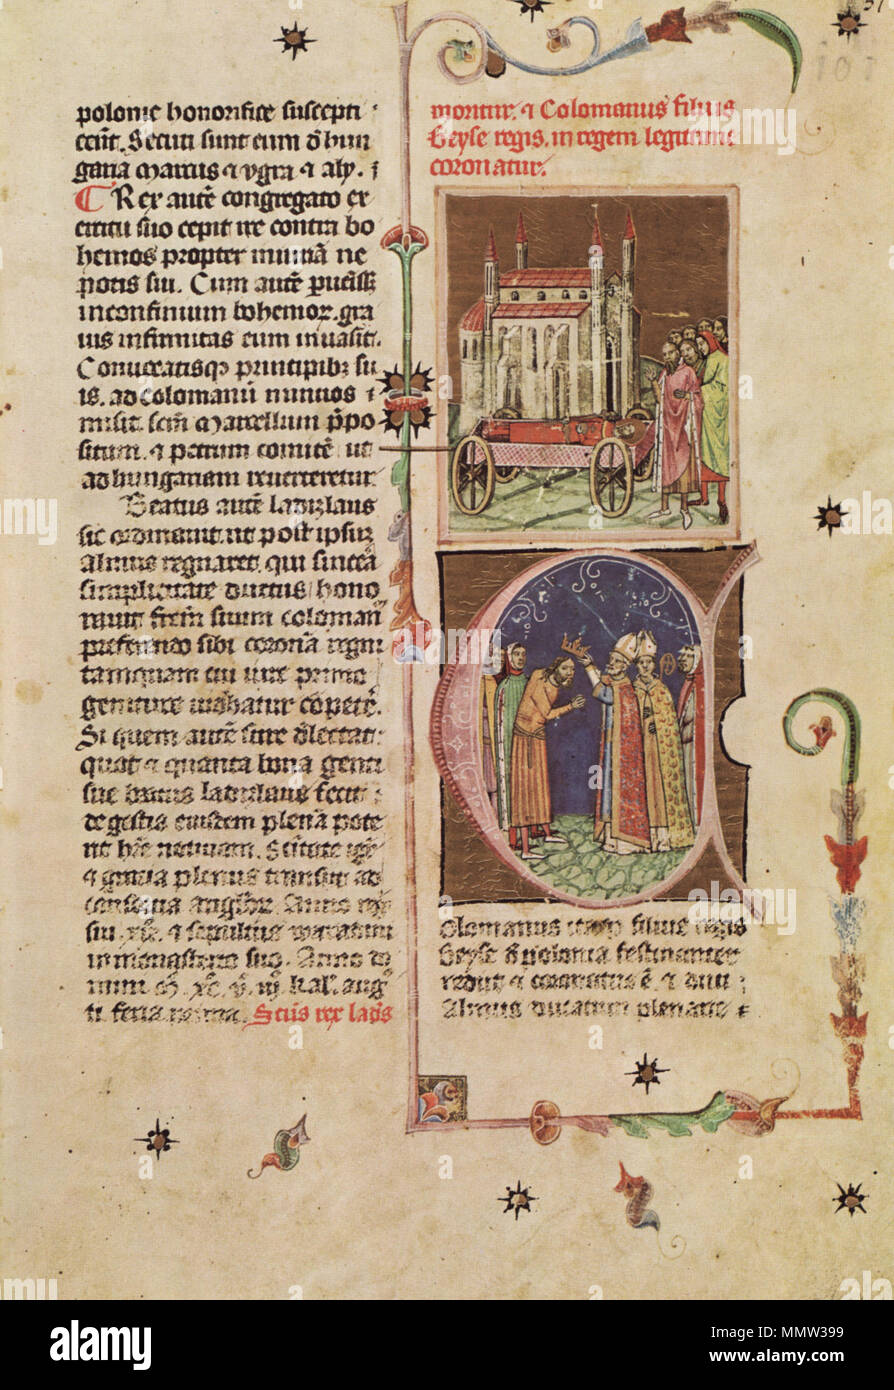 polonie honorifice suscepti
cent. Secuti sunt eum de hun
garia Martius et vgra et aly.
Rex aute congregato ex
ercitu suo cepit ire contra bo
hemos propter iniuria ne
potis sui. Cum aute
in confinium bohemor. gra
uis infirmitas eum inuasit.
Conuocatisq principib su
is. ad colomanu nuncios
misit. Marcellum ppo
situm. et petrum comite ut
ad hungariam reuerteretur.
Beatus aute ladizlaus
sic ordinauit ut post ipsuz
Almus regnaret. qui sincera
simplicitate ductus hono
rauit frem suum coloman
preferendo sibi corona regni
tamquam cui iure primo
geniture uidebatur copete.
Si quem aute sire delectat.
quot et quanta bona genti
sue beatus ladizlaus fecit
de gestis eiusdem plena pote
rit hre noticiam.
et gracia plenus transiit ad
consorcia anglor. Anno
sui. et sepultus waradini
in monasterio suo. Anno do
mini kal. aug
ti feria Scus rex lads
moritur. et Colomanus filius
Geyse regis. in regem legitimu
coronatur.
Colomanus filius regis
Geyse de polonia festinanter
rediit et coronatus e. et duci
Almus ducatum plenarie
101
a
alamy
alamy
Image ID: MMW399
www.alamy.com